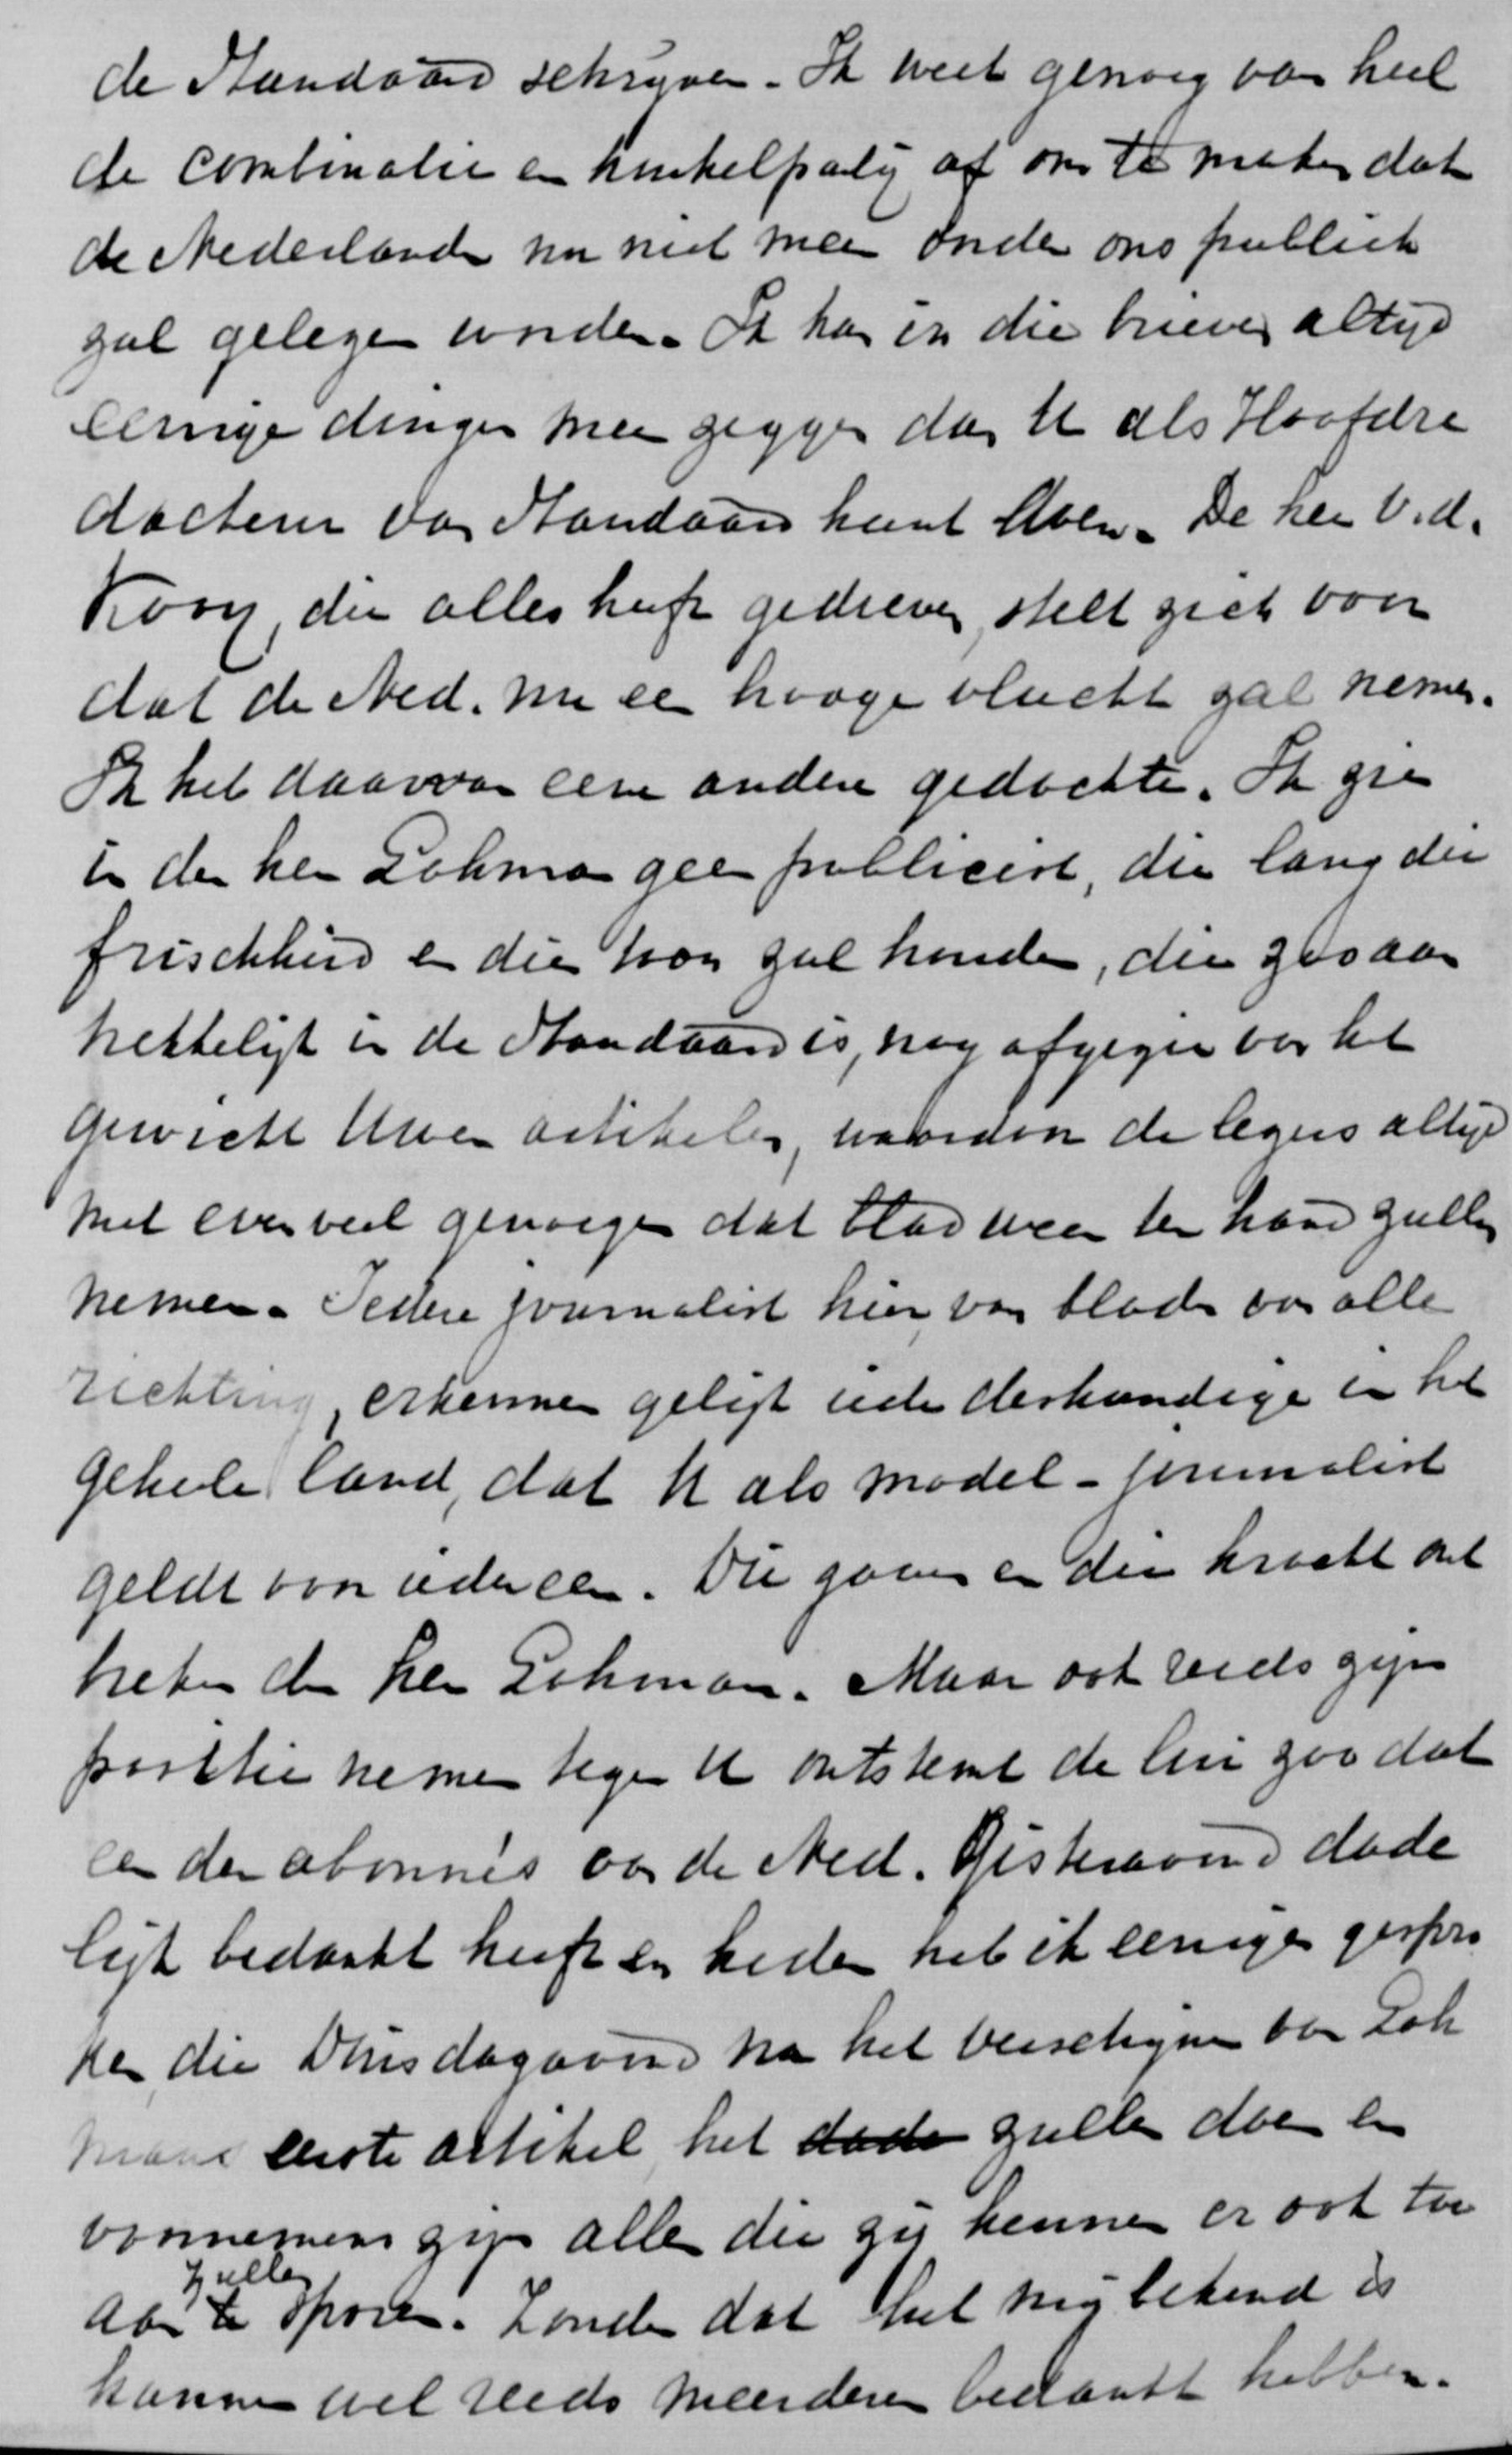 de Standaard schrijven. Ik weet genoeg van heel
de combinatie en kuikelparty af om te maken dat
de Nederlander nu niet meer onder ons publiek
zal gelezen worden. Ik kan in die brieven altijd
eenige dingen meer zeggen dan U als Hoofdre
dacteur van Standaard kunt doen. De heer v.d.
Kooy, die alles heeft gedreven, stelt zich voor
dat de Ned. nu een hooge vlucht zal nemen.
Ik heb daarvan eene andere gedachte. Ik zie
in den heer Lohman geen publicist, die lang die
frischheid en dien toon zal houden, die zoo aan
trekkelijk in de Standaard is, nog afgezien van het
gewicht Uwer artikelen, waardoor de lezers altijd
met evenveel genoegen dat blad weer ter hand zullen
nemen. Iedere journalist hier, van bladen van alle
richting, erkennen gelijk ieder deskundige in het
geheele land, dat U als model-journalist
geldt voor iedereen. Die gaven en die kracht ont
breken den heer Lohman. Maar ook reeds zijn
partij nemen tegen U ontstemt de lui zoo dat
een der abonnés van de Ned. Gisteravond dade
lijk bedankt heeft en heden heb ik eenigen gespro
ken, die Dinsdagavond na het verschijnen van Loh
mans eerste artikel, het dade zullen doen en
voornemens zijn allen die zij kennen er ook toe
aan te sporen. zullen Zonder dat het mij bekend is
kunnen wel reeds meerderen bedankt hebben.